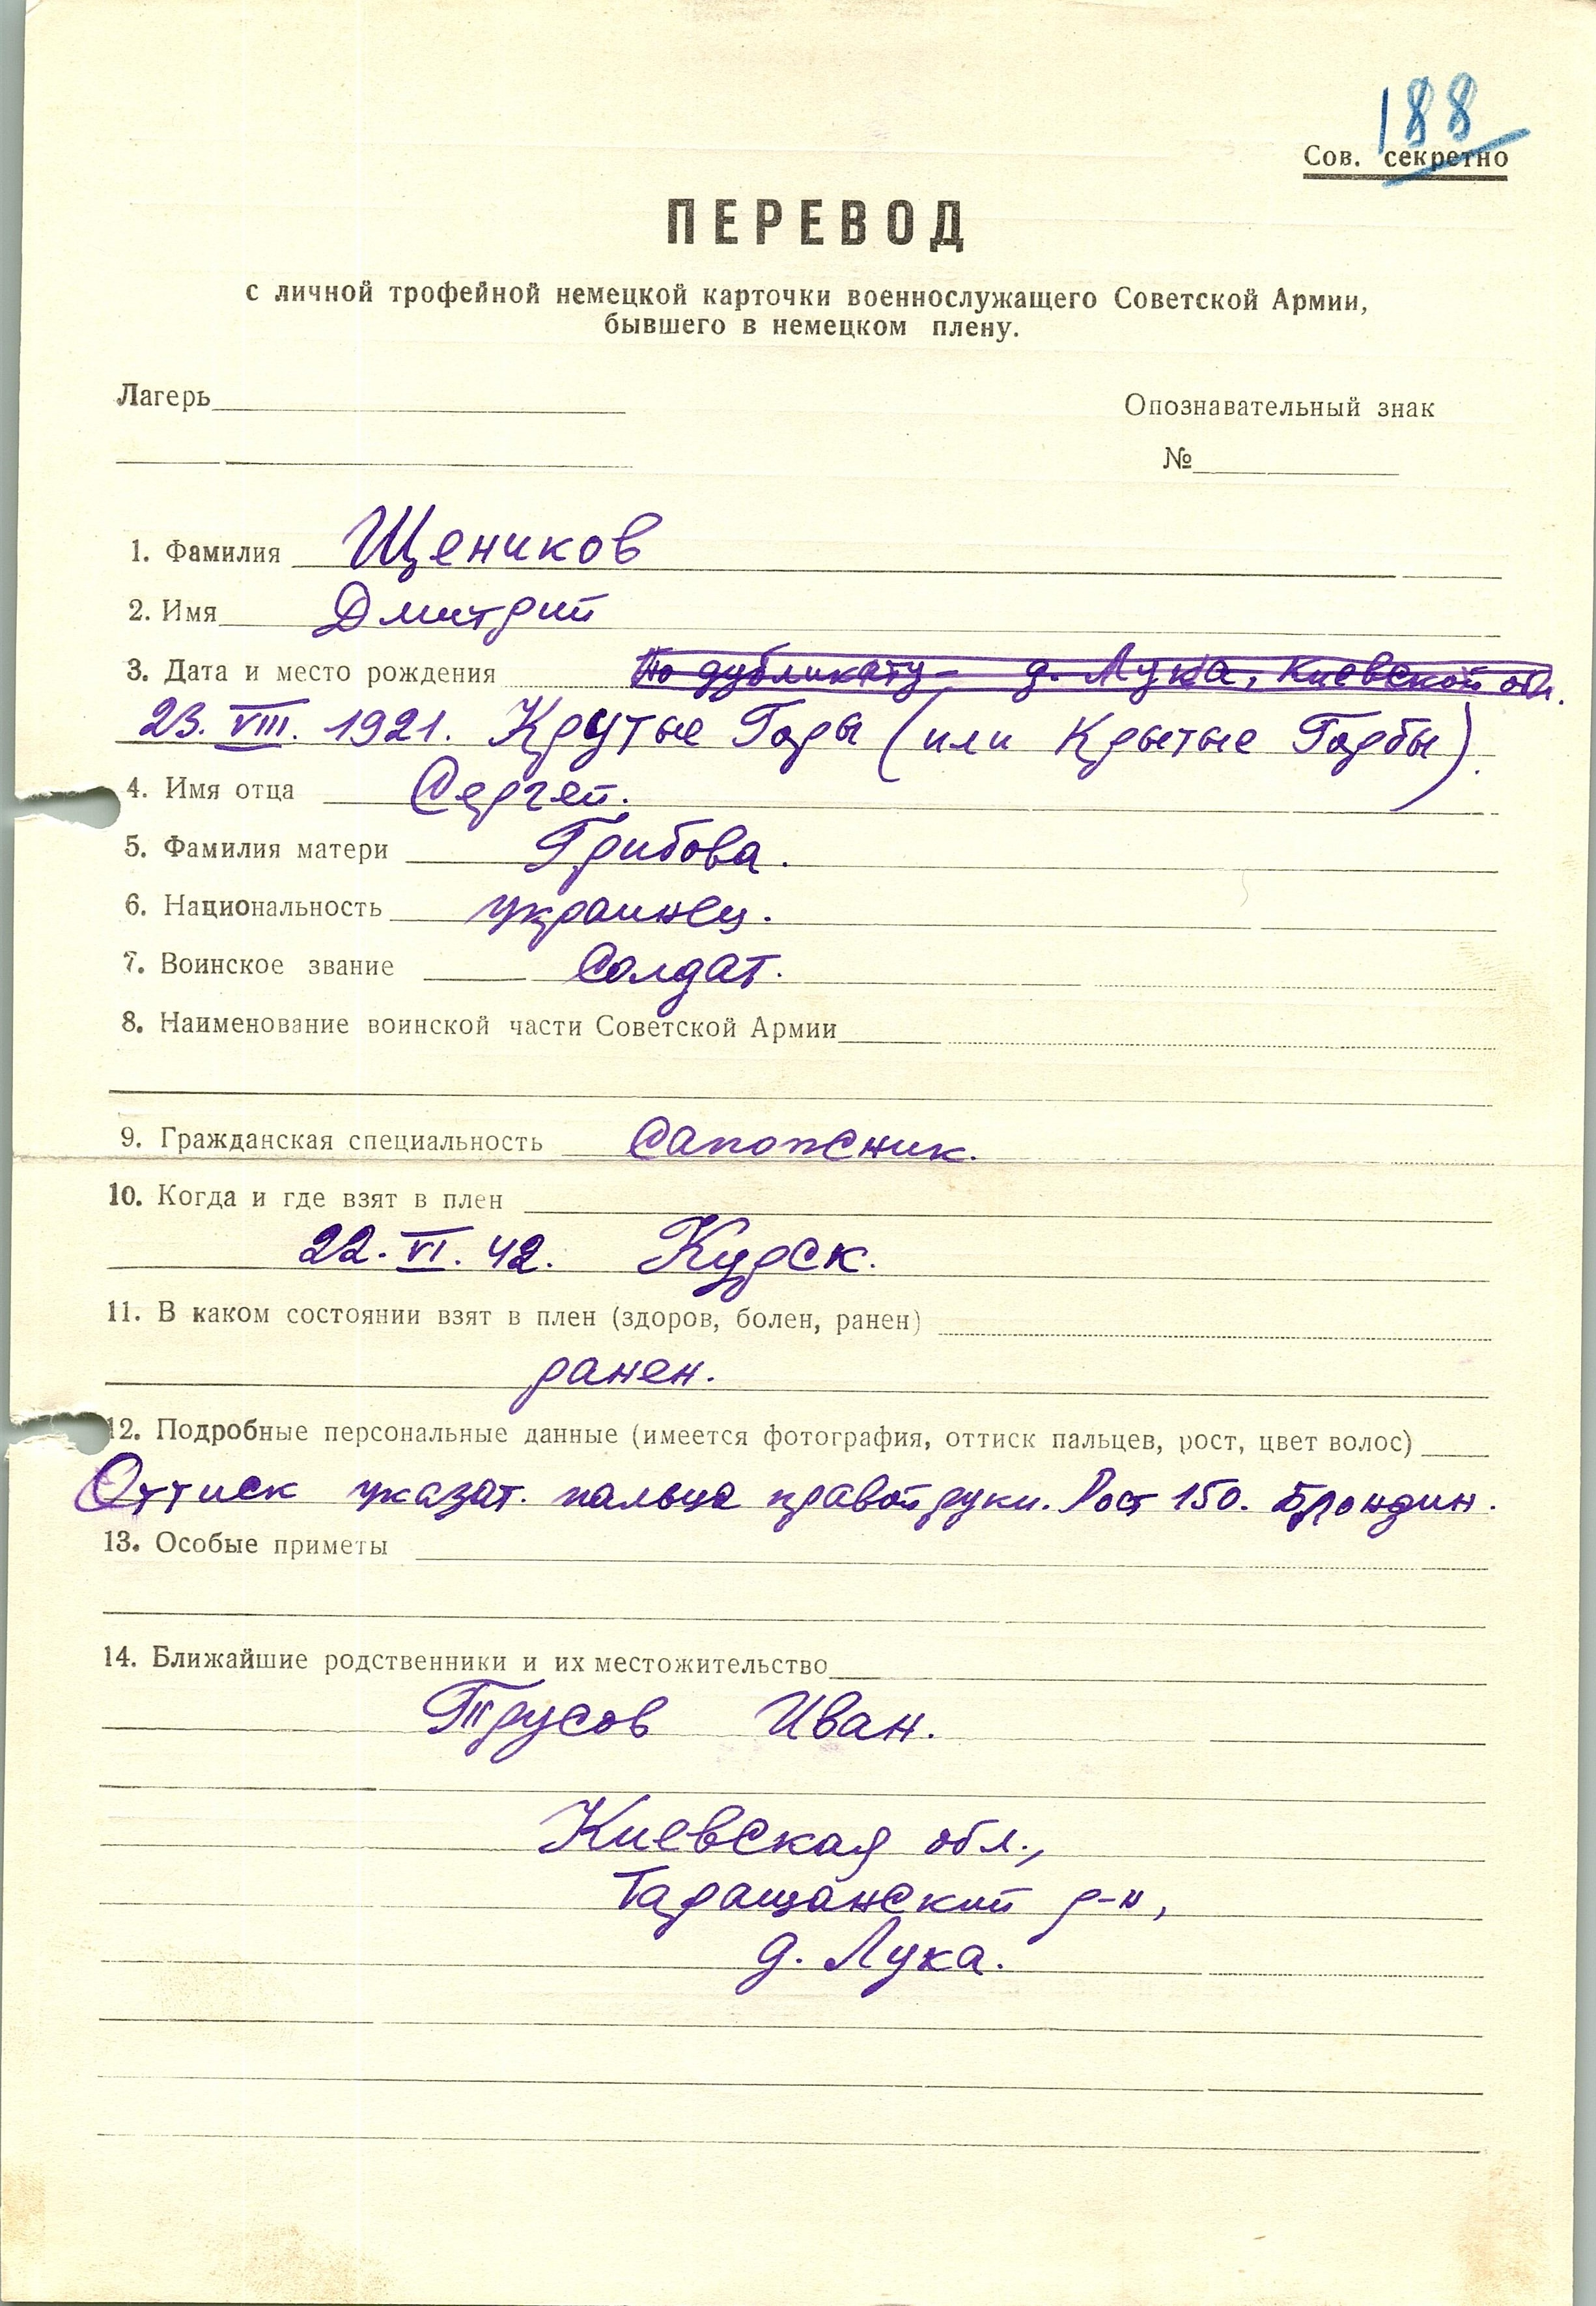 188
Сов. секретно
ПЕРЕВОД
с личной трофейной немецкой карточки военнослужащего Советской Армии,
бывшего в немецком плену.
Лагерь
Опознавательный знак
№
1. Фамилия Щеников
2. Имя Дмитрий
3. Дата и место рождения По дубликату - д. Лука, Киевской обл.
23. VIII. 1921. Крутые Горы (или Крытые Горбы).
4. Имя отца Сергей.
5. Фамилия матери Грибова.
6. Национальность украинец.
7. Воинское звание Солдат.
8. Наименование воинской части Советской Армии
9. Гражданская специальность Сапожник.
10. Когда и где взят в плен
22. VI. 42. Курск.
11. В каком состоянии взят в плен (здоров, болен, ранен)
ранен.
12. Подробные персональные данные (имеется фотография, оттиск пальцев, рост, цвет волос)
Оттиск указат. пальца правой руки. Рост 150. Блондин.
13. Особые приметы
14. Ближайшие родственники и их местожительство
Трусов Иван.
Киевская обл.,
Таращанский р-н,
д. Лука.